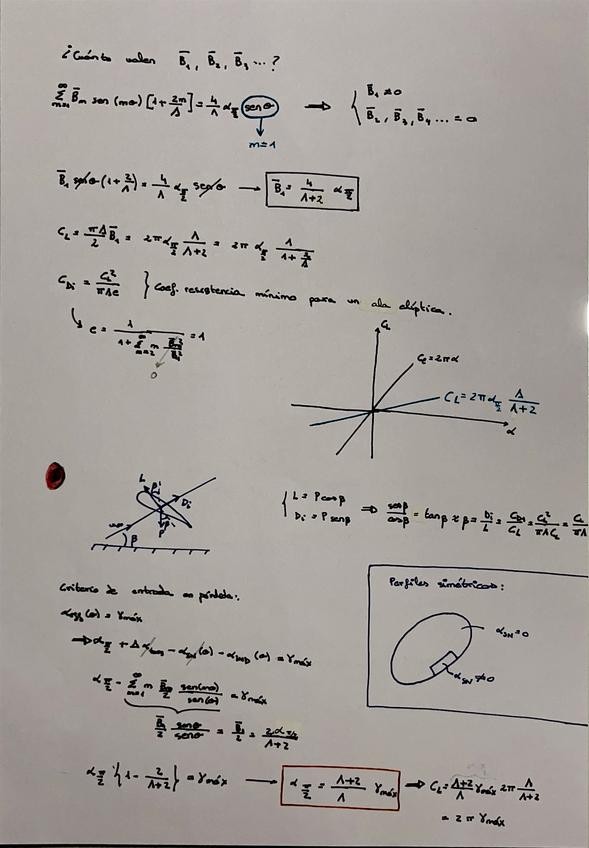 ¿Cuánto valen B̄₁, B̄₂, B̄₃ ...?
∞∑m=1 B̄m sen (mθ) [1 + 2m/Λ] = 4/Λ α π/2 senθ → { B̄₁ ≠ 0
B̄₂, B̄₃, B̄₄ ... = 0
m=1
B̄₁ senθ (1 + 2/Λ) = 4/Λ α π/2 senθ → B̄₁ = 4/(Λ+2) α π/2
C_L = πΛ/2 B̄₁ = 2π α π/2 Λ/(Λ+2) = 2π α π/2 1/(1 + 2/Λ)
C_Di = C_L²/(πΛe) } Coef. resistencia mínimo para un ala elíptica.
e = 1/(1 + ∞∑m=2 m B̄m²/B̄₁²) = 1
0
C_L
C_l = 2πα
C_L = 2π α π/2 Λ/(Λ+2)
α
L
βi
Di
P
u∞
β
{ L = P cosβ
Di = P senβ ⇒ senβ/cosβ = tanβ ≈ β = Di/L = C_Di/C_L = C_L²/(πΛC_L) = C_L/(πΛ
Criterio de entrada en pérdida:
(0) = γmáx
⇒ α π/2 + Δα − α (0) − α (0) = γmáx
α π/2 − ∞∑m=1 m B̄m/2 sen(mθ)/sen(θ) = γmáx
B̄₁/2 senθ/senθ = B̄₁/2 = 2α π/2/(Λ+2)
α π/2 {1 − 2/(Λ+2)} = γmáx → α π/2 = (Λ+2)/Λ γmáx ⇒ C_L = (Λ+2)/Λ γmáx 2π Λ/(Λ+2)
= 2π γmáx
Perfiles simétricos:
α_SN = 0
α_SN ≠ 0